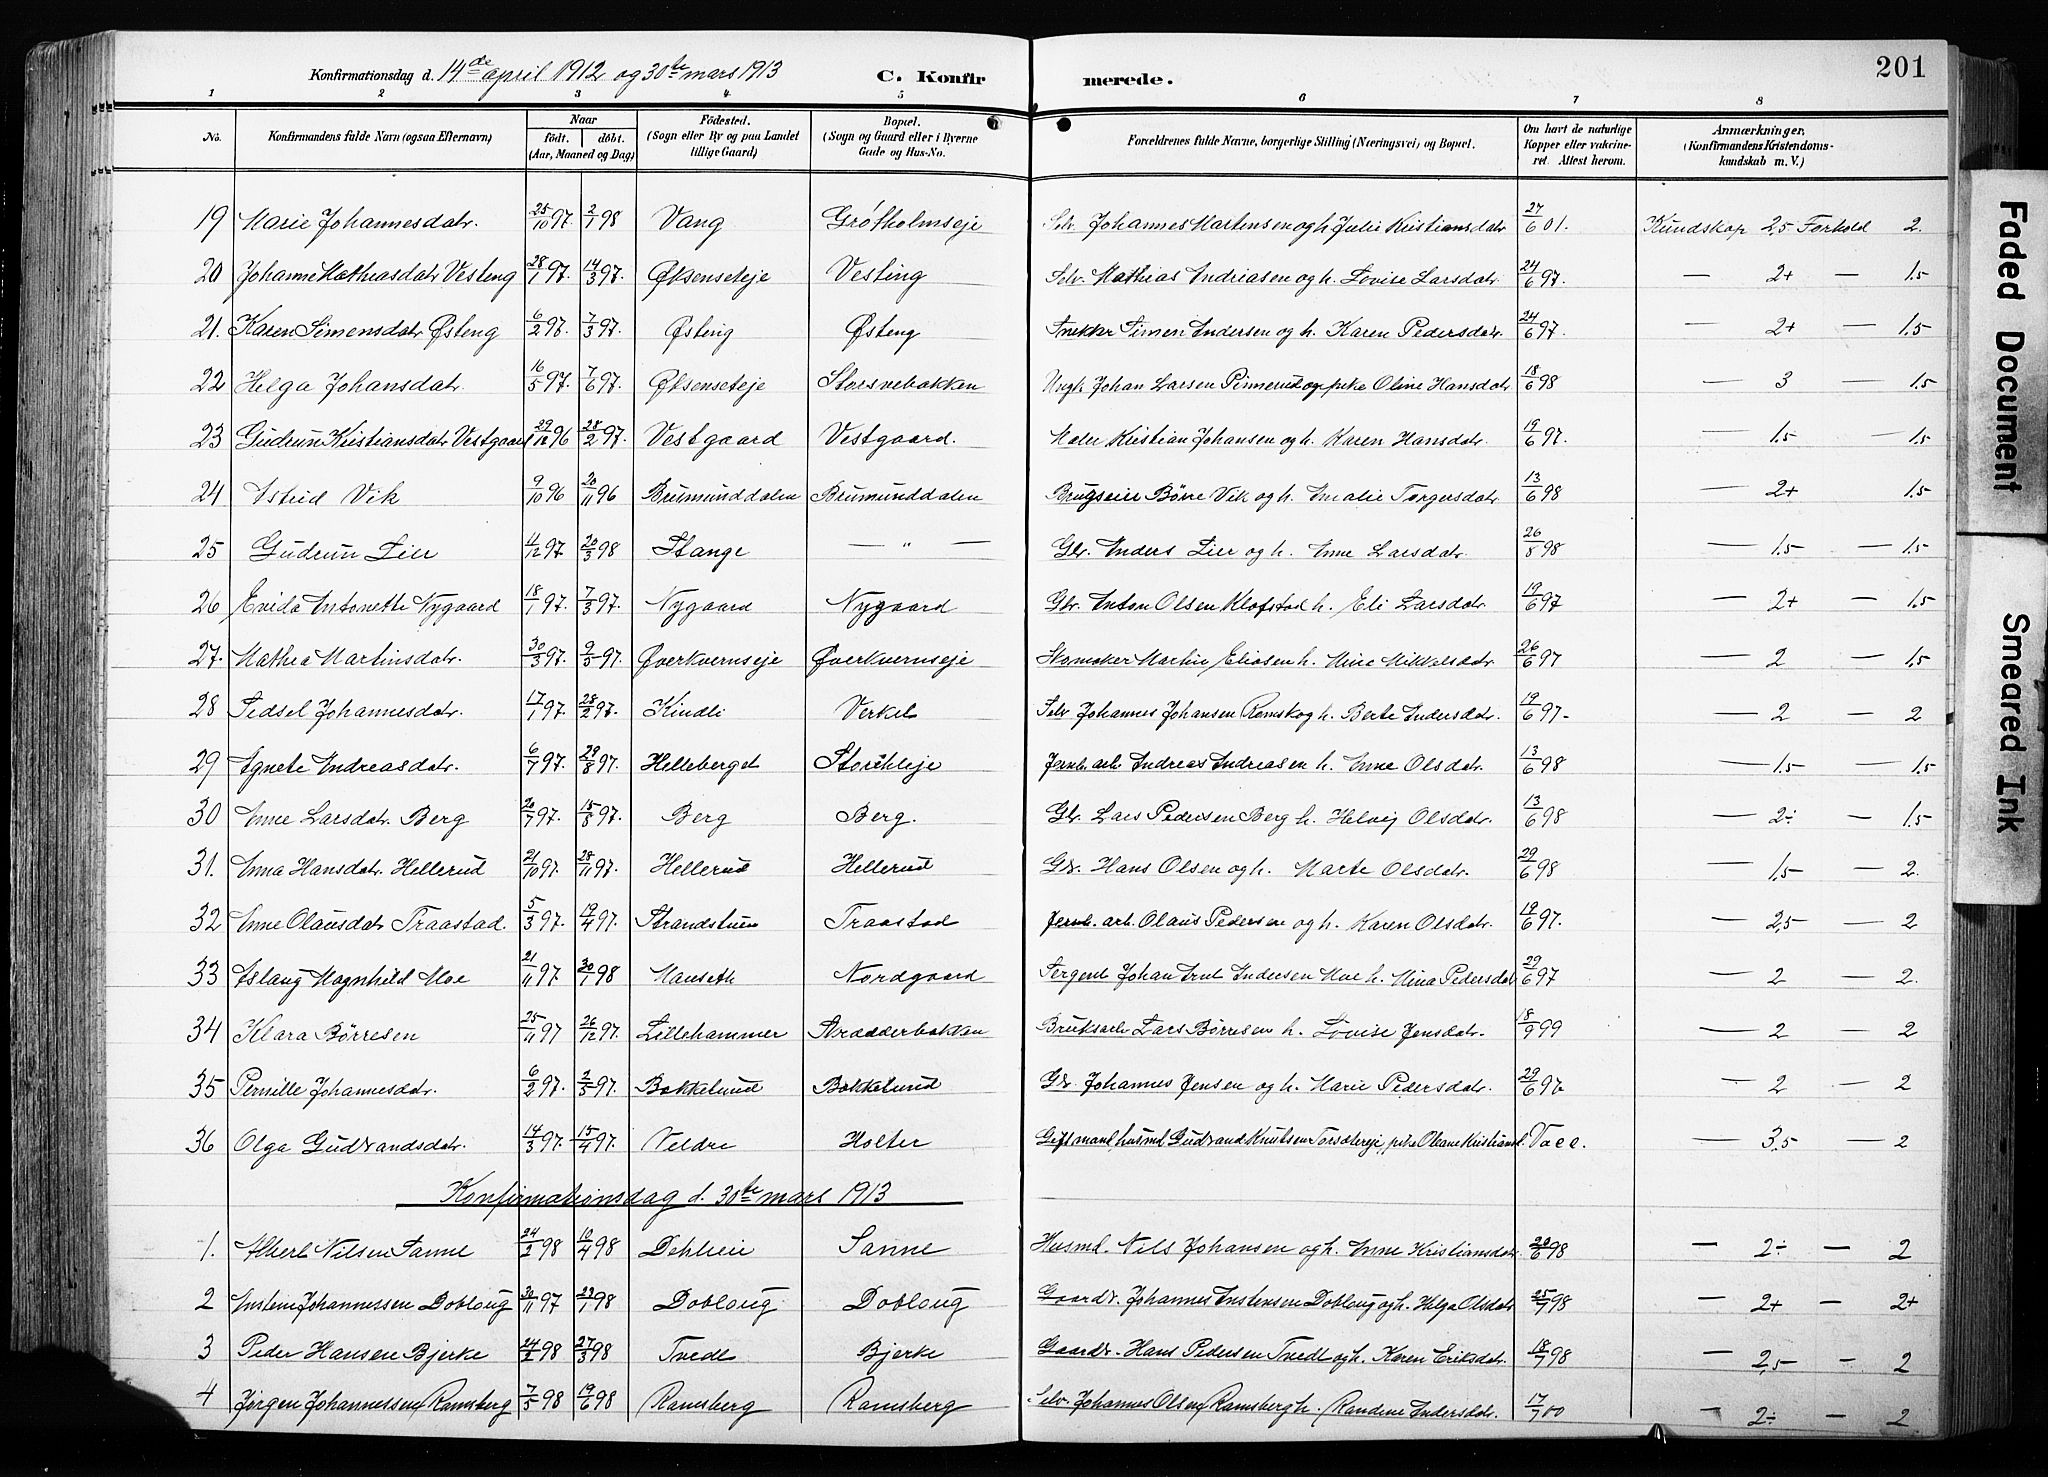 Konfirmationsdag d. 14de april 1912 og 30te mars 1913 C. Konfirmerede. 201
1 2 3 4 5 6 7 8
No. Konfirmandens fulde Navn (ogsaa Efternavn) Naar født. døbt. (Aar, Maaned og Dag) Fødested. (Sogn eller By og paa Landet tillige Gaard) Bopæl. (Sogn og Gaard eller i Byerne Gade og Hus-No. Forældrenes fulde Navne, borgerlige Stilling (Næringsvei) og Bopæl. Om havt de naturlige Kopper eller vakcineret. Attest herom. Anmærkninger. (Konfirmandens Kristendomskundskab m. V.)
19 Marie Johannesdatr. 25/10 97. 2/1 98 Vang Grøtholmseje Selv. Johannes Martensen og h. Julie Kristiansdatr 27/6 01. Kundskap 2,5 Forhold 2.
20 Johanne Mathiasdatr Vesteng 28/1 97. 14/3 97. Øksenseteje Vesting Selv. Mathias Andreasen og h. Lovise Larsdatr. 24/6 97. — 2+ — 1.5
21. Karen Simensdatr Østeng 6/2 97. 7/3 97. Østeng Østeng Snekker Simen Andersen og h. Karen Pedersdatr. 24/6 97. — 2+ — 1.5
22 Helga Johansdatr. 16/5 97. 7/6 97. Øksenseteje Storsvebakken Ungk. Johan Larsen Pinnerud og pike Oline Hansdatr 18/6 98 — 3 — 1.5
23 Gudrun Kristiansdatr Vestgaard 29/12 96 28/2 97. Vestgaard Vestgaard. Maler Kristian Johansen og h. Karen Hansdatr. 19/6 97. — 1.5 — 1.5
24 Astrid Vik 9/10 96 20/11 96 Brumunddalen Brumunddalen Brugseier Børre Vik og h. Amalie Torgersdatr 13/6 98 — 2+ 1.5
25 Gudrun Lier 4/12 97 20/3 98 Stange — " — Gbr. Anders Lier og h. Anne Larsdatr. 26/8 98 — 1.5 — 1.5
26 Evida Antonette Nygaard 18/1 97. 7/3 97. Nygaard Nygaard Gbr. Anton Olsen Klofstad h. Eli Larsdatr 19/6 97 — 2+ — 1.5
27. Mathea Martinsdatr. 30/3 97. 9/5 97. Øverkvernseje Øverkvernseje Skomaker Martin Eliasen h. Mina Mikkelsdatr. 26/6 97 — 2 — 1.5
28 Sidsel Johannesdatr. 17/1 97. 28/2 97. Kindli Verket Selv Johannes Johansen Romskog h. Berte Andersdatr. 19/6 97. — 2 — 2
29 Agnete Andreasdatr. 6/7 97. 29/8 97. Helleberget Storihleje Jernb. arb. Andreas Andreasen h. Anne Olsdatr. 13/6 98 — 1.5 — 1.5
30 Anne Larsdatr. Berg 20/7 97. 15/8 97. Berg Berg. Gbr. Lars Pedersen Berg h. Helvig Olsdatr. 13/6 98 — 2÷ — 1.5
31. Anna Hansdatr. Hellerud 21/10 97. 28/11 97. Hellerud Hellerud Gbr. Hans Olsen og h. Marte Olsdatr. 29/6 98 — 1.5 — 2.
32 Anne Olausdatr Traastad. 5/3 97. 19/4 97. Strandstuen Traastad Jernb. arb. Olaus Pedersen og h. Karen Olsdatr. 19/6 97. — 2,5 — 2
33 Aslaug Magnhild Moe 21/11 97 30/1 98 Hanseth Nordgaard Sergent Johan Arnt Andersen Moe h. Mina Pedersdatr 29/6 97 — 2 — 2.
34 Klara Børresen 25/11 97 26/12 97. Lillehammer Skradderbakken Bruksarb Lars Børresen h. Lovise Jensdatr. 18/9 99 — 2 — 2
35 Pernille Johannesdatr. 6/2 97. 2/5 97. Bakkelund Bakkelund Gbr. Johannes Jensen og h. Marie Pedersdatr. 29/6 97. — 2 — 2
36 Olga Gudvandsdatr. 14/3 97. 15/4 97. Veldre Holter Gift mand, husmd. Gudvand Knutsen Torsætereje, pike Oleane Kristiansd. Vacc. — 3,5 — 2
Konfirmationsdag d. 30te mars 1913
1. Albert Nilsen Sanne 24/2 98 10/4 98 Dehlien Sanne Husmd. Nils Johansen og h. Anne Kristiansdatr. 20/6 98 — 2÷ — 2
2 Ansten Johannessen Doblong 30/11 97 23/1 98 Doblong Doblong Gaardbr. Johannes Anstensen Doblong og h. Helga Olsdatr 25/7 98 — 2+ — 2+
3 Peder Hansen Bjerke 24/2 98 27/3 98 Tvedt Bjerke Gaardbr. Hans Pedersen Tvedt og h. Karen Eriksdatr. 18/7 98 — 2,5 — 2
4 Jørgen Johannessen Ramsberg 7/5 98 19/6 98 Ramsberg Ramsberg Selv. Johannes Olsen Ramsberg h. Randine Andersdatr. 17/7 00 — 2÷ — 2
Faded Document
Smeared Ink